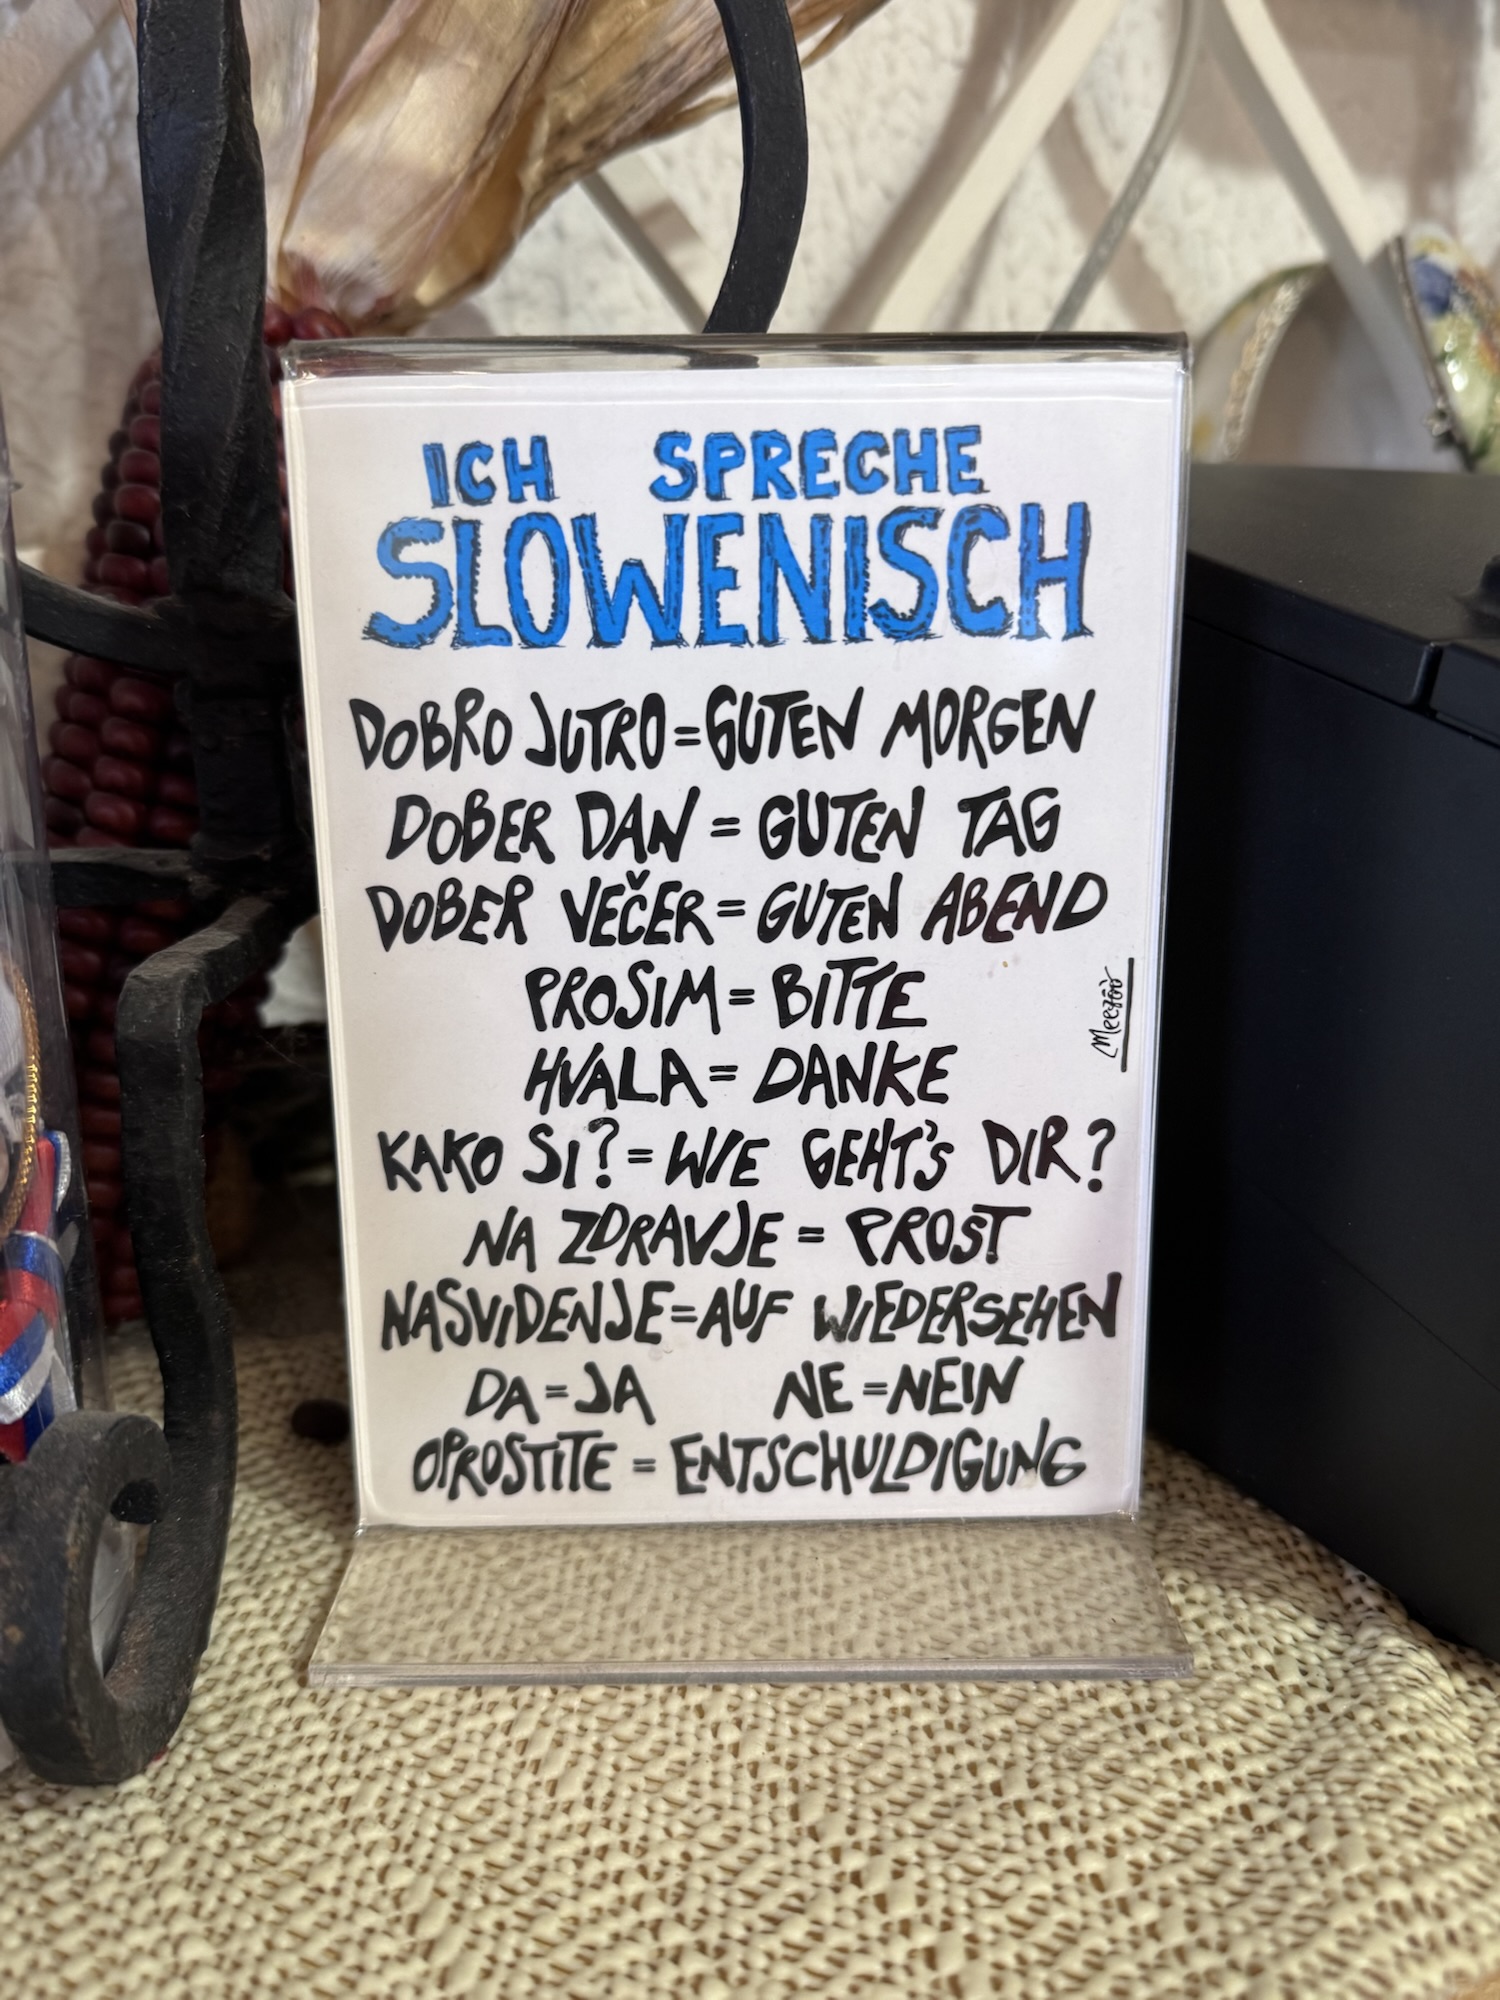 ICH SPRECHE
SLOWENISCH
DOBRO JUTRO=GUTEN MORGEN
DOBER DAN = GUTEN TAG
DOBER VEČER = GUTEN ABEND
PROSIM = BITTE
HVALA = DANKE
KAKO SI? = WIE GEHT'S DIR?
NA ZDRAVJE = PROST
NASVIDENJE=AUF WIEDERSEHEN
DA=JA NE=NEIN
OPROSTITE = ENTSCHULDIGUNG